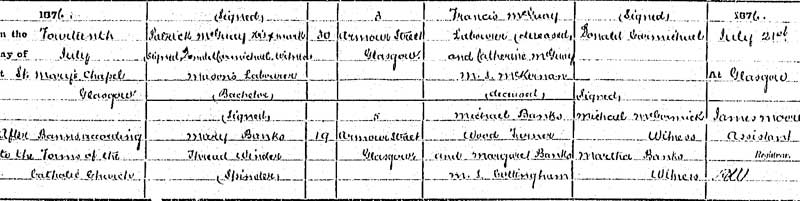 1876.
on the Fourteenth
day of July
at St. Mary's Chapel
Glasgow
After Banns according
to the Forms of the
Catholic Church
(Signed)
Patrick McGuay his x mark
Signed, Donald Carmichael, Witness
Mason's Labourer
(Bachelor)
(Signed)
Mary Banks
Thread Winder
(Spinster)
30
19
3
Armour Street
Glasgow.
5
Armour Street
Glasgow
Francis McGuay
Labourer (deceased)
and Catherine McGuay
M. S. McKernan
(deceased)
Michael Banks
Wood Turner
and Margaret Banks
M. S. Cottingham
(Signed)
Donald Carmichael
Signed,
Michael McCormick
Witness
Martha Banks
Witness
1876.
July 21st
At Glasgow
James Moore
Assistant
Registrar.